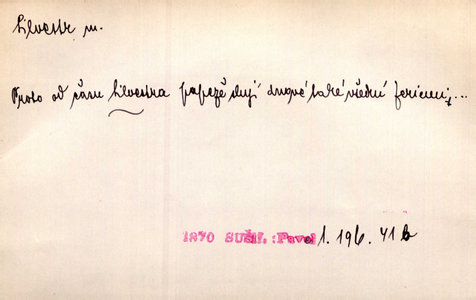 Silvestr m.
Proto od času Silvestra papeže slují dnové také všední feriemi,...
1870 SUŠIL :Pavel 1. 196. 41 b